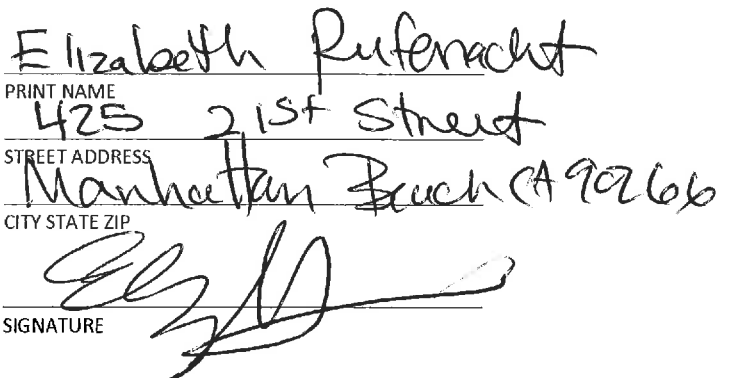 Elizabeth Rufenacht
PRINT NAME
425 21st Street
STREET ADDRESS
Manhattan Beach CA 90266
CITY STATE ZIP
SIGNATURE